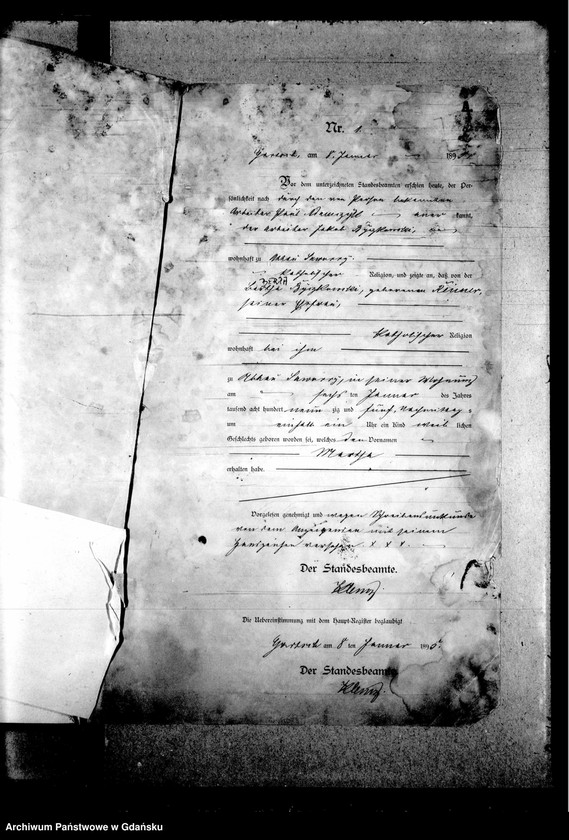 Nr. 1
am 8. Januar 189
Vor dem unterzeichneten Standesbeamten erschien heute, der Per-
sönlichkeit nach durch den von Person bekannten
Arbeiter Paul kannt,
der Arbeiter Jakob
wohnhaft zu Abbau
katholischer Religion, und zeigte an, daß von der
geborenen
seiner Ehefrau,
katholischer Religion
wohnhaft bei ihm
zu Abbau in seiner Wohnung
am sechs ten Januar des Jahres
tausend acht hundert neun zig und fünf, Nachmittags
um einhalb ein Uhr ein Kind weib lichen
Geschlechts geboren worden sei, welches den Vornamen
Martha
erhalten habe.
Vorgelesen, genehmigt und wegen Schreibensunkunde
von dem Anzeigenden mit seinem
Handzeichen versehen x x x
Der Standesbeamte.
Die Uebereinstimmung mit dem Haupt-Register beglaubigt
am 8 ten Januar 1895.
Der Standesbeamte.
Archiwum Państwowe w Gdańsku